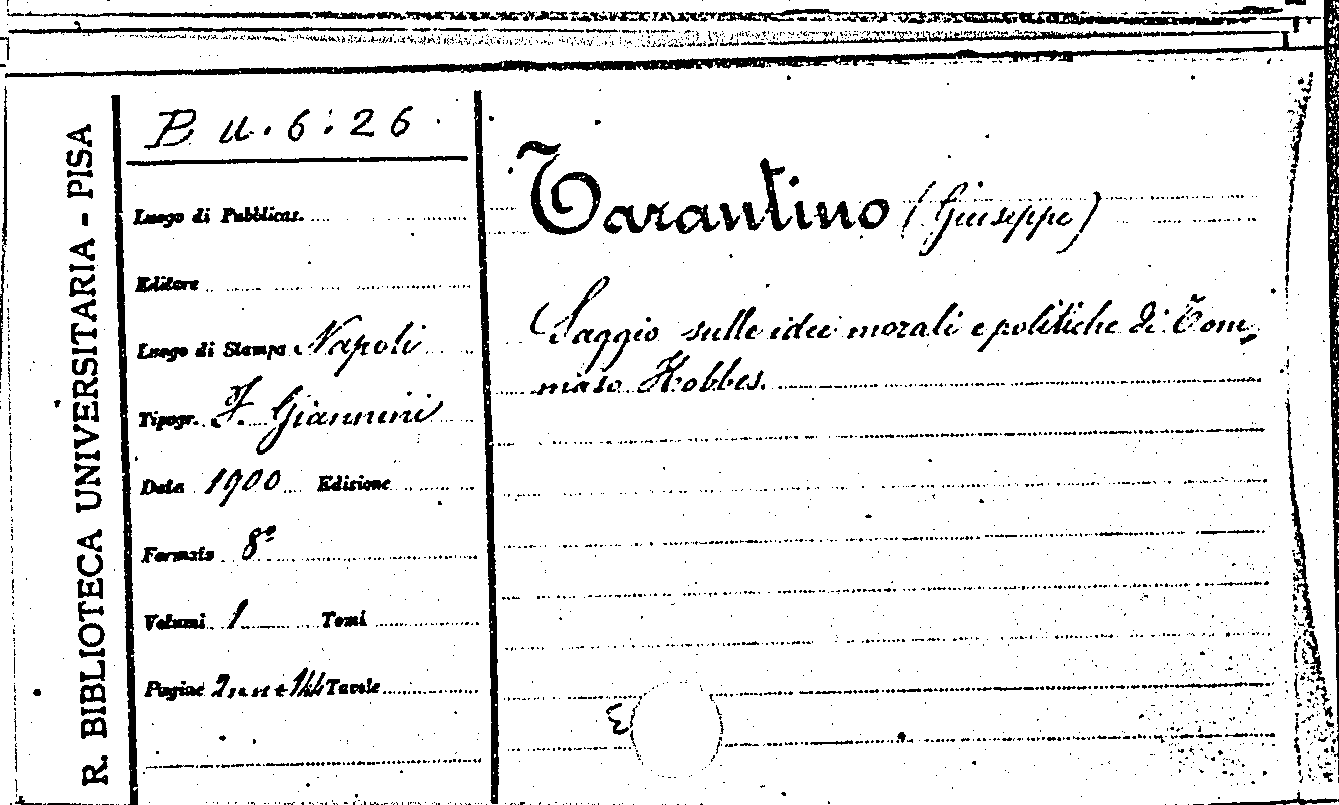 R. BIBLIOTECA UNIVERSITARIA - PISA
B u. 6: 26
Luogo di Pubblicaz.
Editore
Luogo di Stampa Napoli
Tipogr. F. Giannini
Data 1900 Edizione
Formato 8º
Volumi 1 Tomi
Pagine 144 Tavole
Tarantino (Giuseppe)
Saggio sulle idee morali e politiche di Tom,
maso Hobbes.